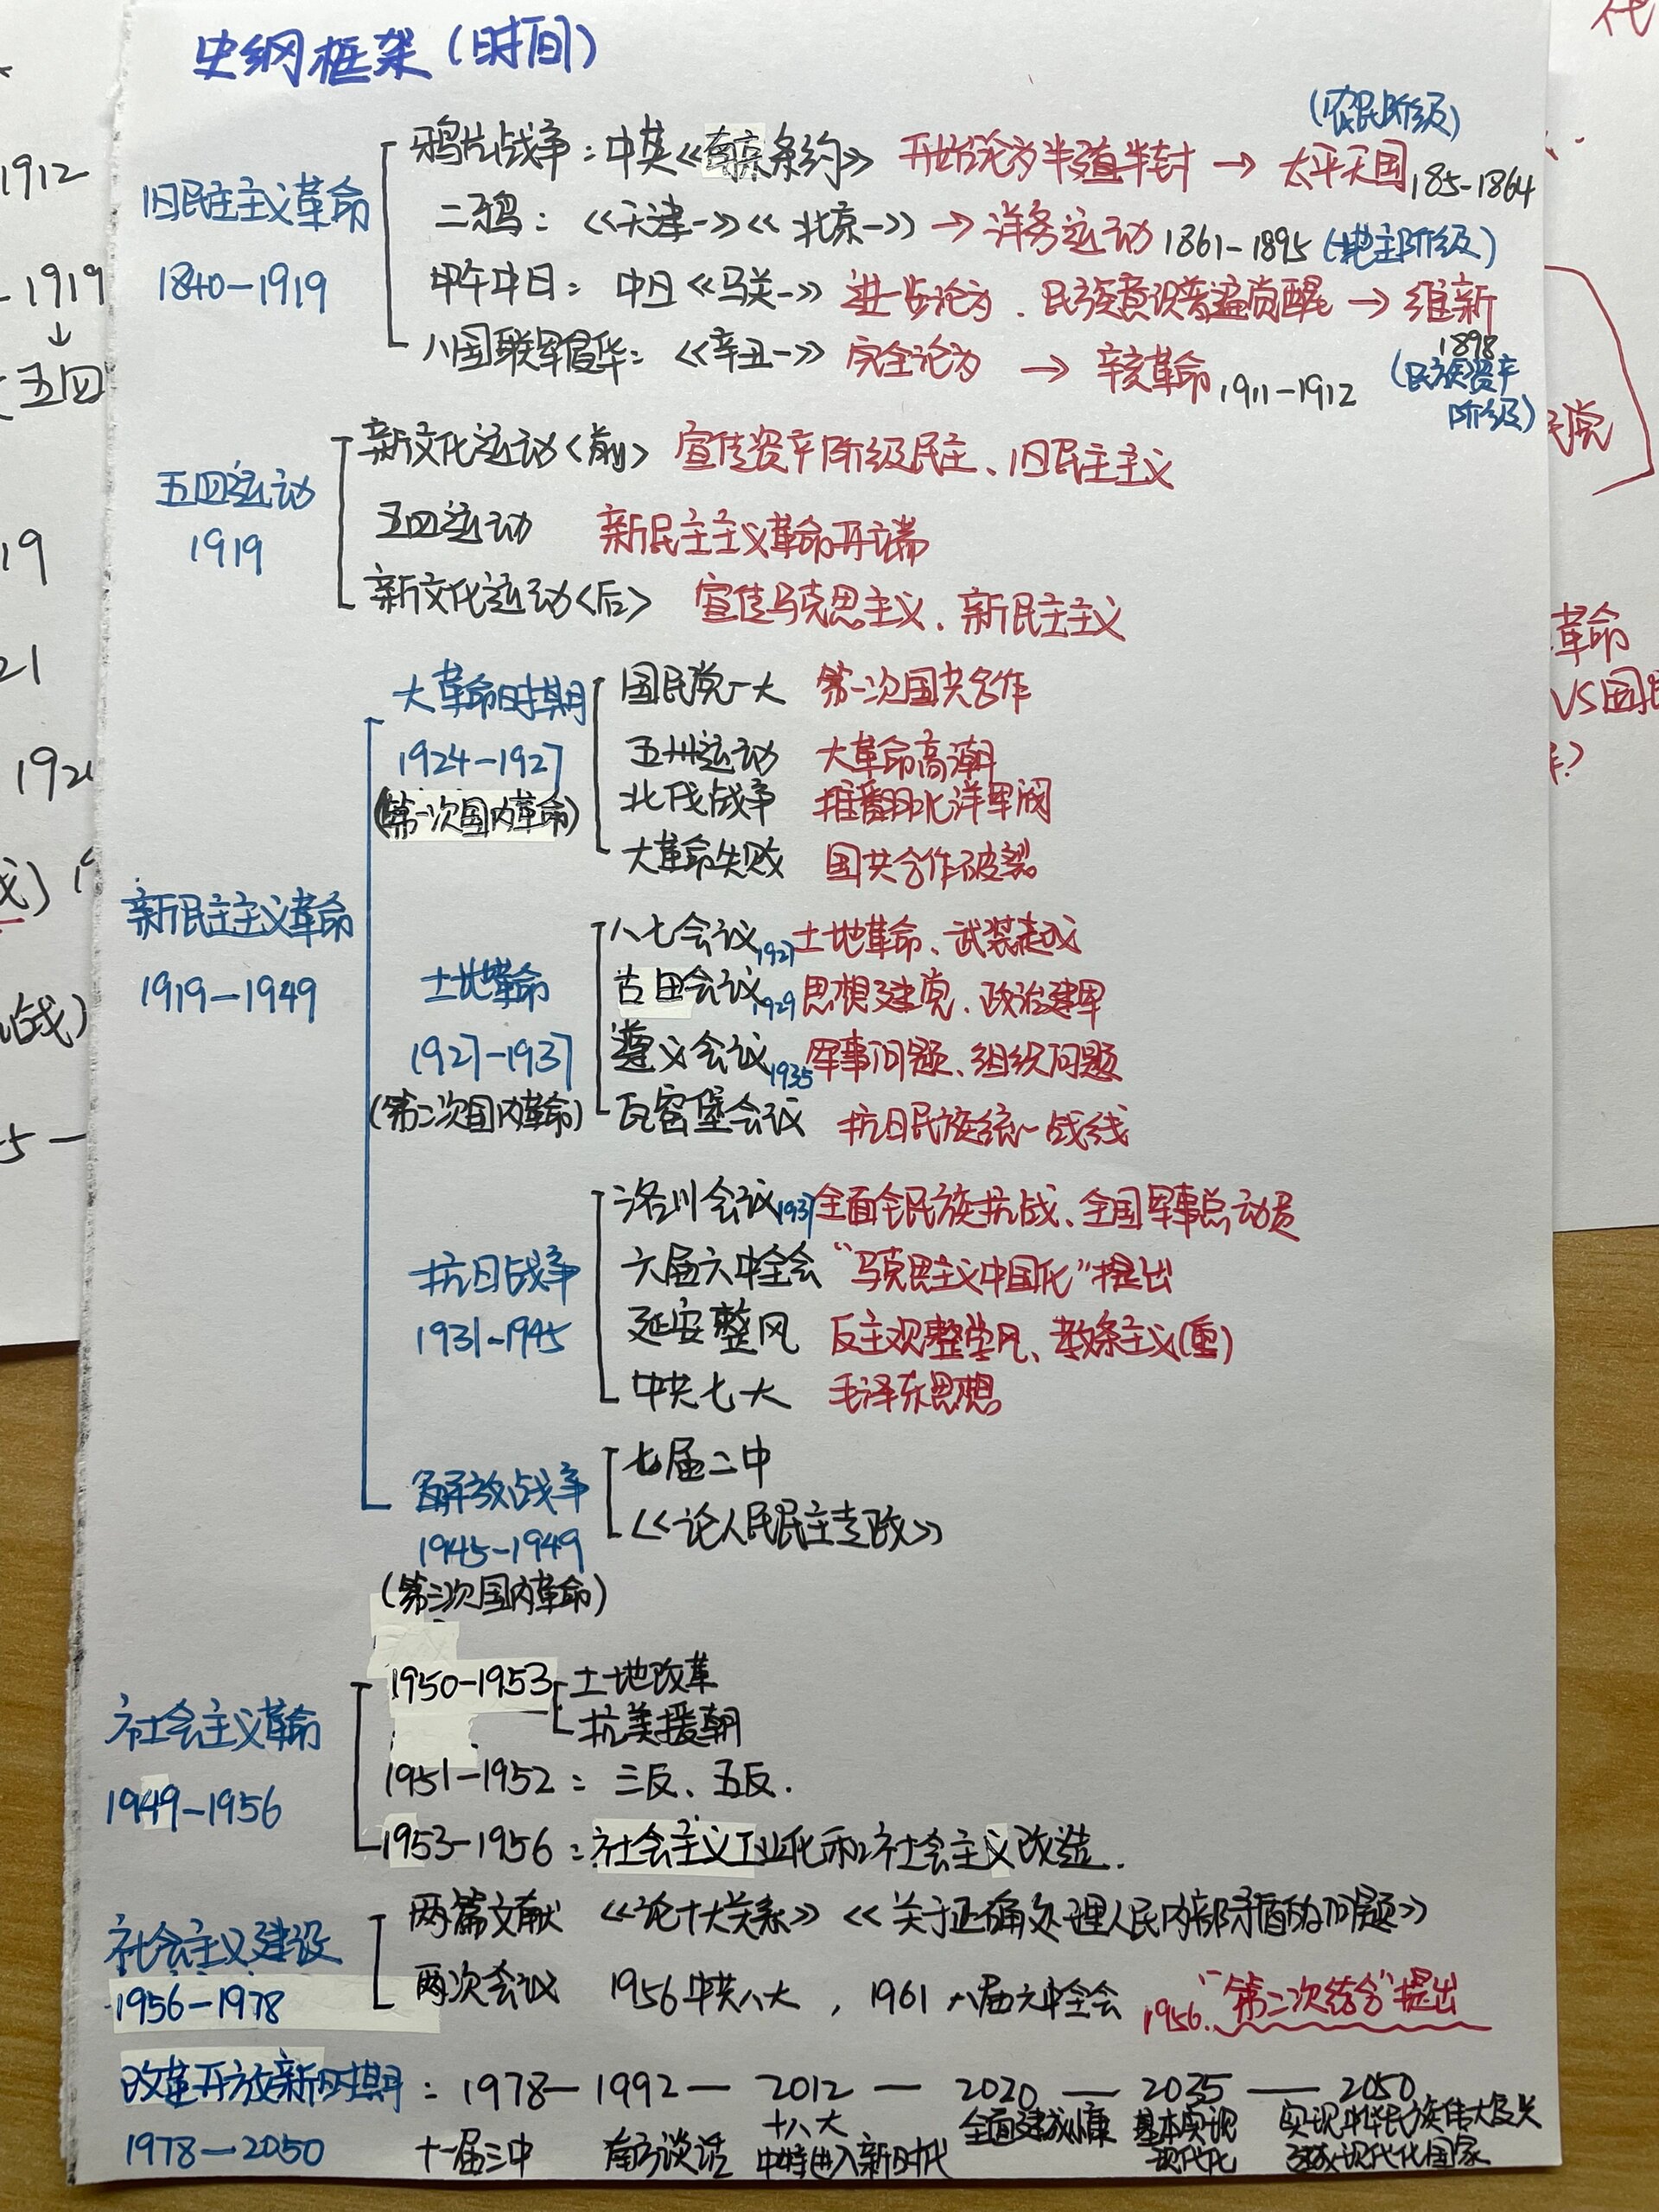 史纲框架(时间)
(农民阶级)
旧民主主义革命
1840-1919
鸦片战争:中英《南京条约》 开始沦为半殖半封 → 太平天国 185-1864
二鸦:《天津一》《北京一》→ 洋务运动 1861-1895 (地主阶级)
甲午中日:中日《马关一》 进一步沦为、民族意识普遍觉醒 → 维新
1898
八国联军侵华:《辛丑一》 完全沦为 → 辛亥革命 1911-1912
(民族资产
阶级)
五四运动
1919
新文化运动〈前〉 宣传资产阶级民主、旧民主主义
五四运动 新民主主义革命开端
新文化运动〈后〉 宣传马克思主义、新民主主义
新民主主义革命
1919-1949
大革命时期
1924-1927
(第一次国内革命)
国民党一大 第一次国共合作
五卅运动 大革命高潮
北伐战争 推翻北洋军阀
大革命失败 国共合作破裂
土地革命
1927-1937
(第二次国内革命)
八七会议 1927 土地革命、武装起义
古田会议 1929 思想建党、政治建军
遵义会议 1935 军事问题、组织问题
瓦窑堡会议 抗日民族统一战线
抗日战争
1931-1945
洛川会议 1937 全面全民族抗战、全国军事总动员
六届六中全会 “马克思主义中国化”提出
延安整风 反主观整学风、教条主义(重)
中共七大 毛泽东思想
解放战争
1945-1949
(第三次国内革命)
七届二中
《论人民民主专政》
社会主义革命
1949-1956
1950-1953 土地改革
抗美援朝
1951-1952:三反、五反.
1953-1956:社会主义工业化和社会主义改造.
社会主义建设
1956-1978
两篇文献 《论十大关系》《关于正确处理人民内部矛盾的问题》
两次会议 1956中共八大,1961八届六中全会 1956.“第二次结合”提出
改革开放新时期:1978-1992-2012-2020-2035-2050
1978-2050
十一届三中
南方谈话
十八大
中特进入新时代
全面建成小康
基本实现
现代化
实现中华民族伟大复兴
建成现代化国家
1912
1919
↓
五四
19
21
战)
-5-
代
党
革命
VS国民